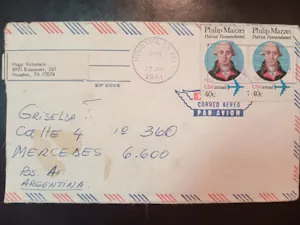 Hugo Valentein
Houston, TX 77036
ZIP CODE
HOUSTON, TX
1981
Philip Mazzei
Patriot Remembered
USAirmail
40c
Philip Mazzei
Patriot Remembered
USAirmail
40c
CORREO AEREO
PAR AVION
GRISELDA
CALLE 4 Nº 360
MERCEDES 6.600
Bs. A.
ARGENTINA.